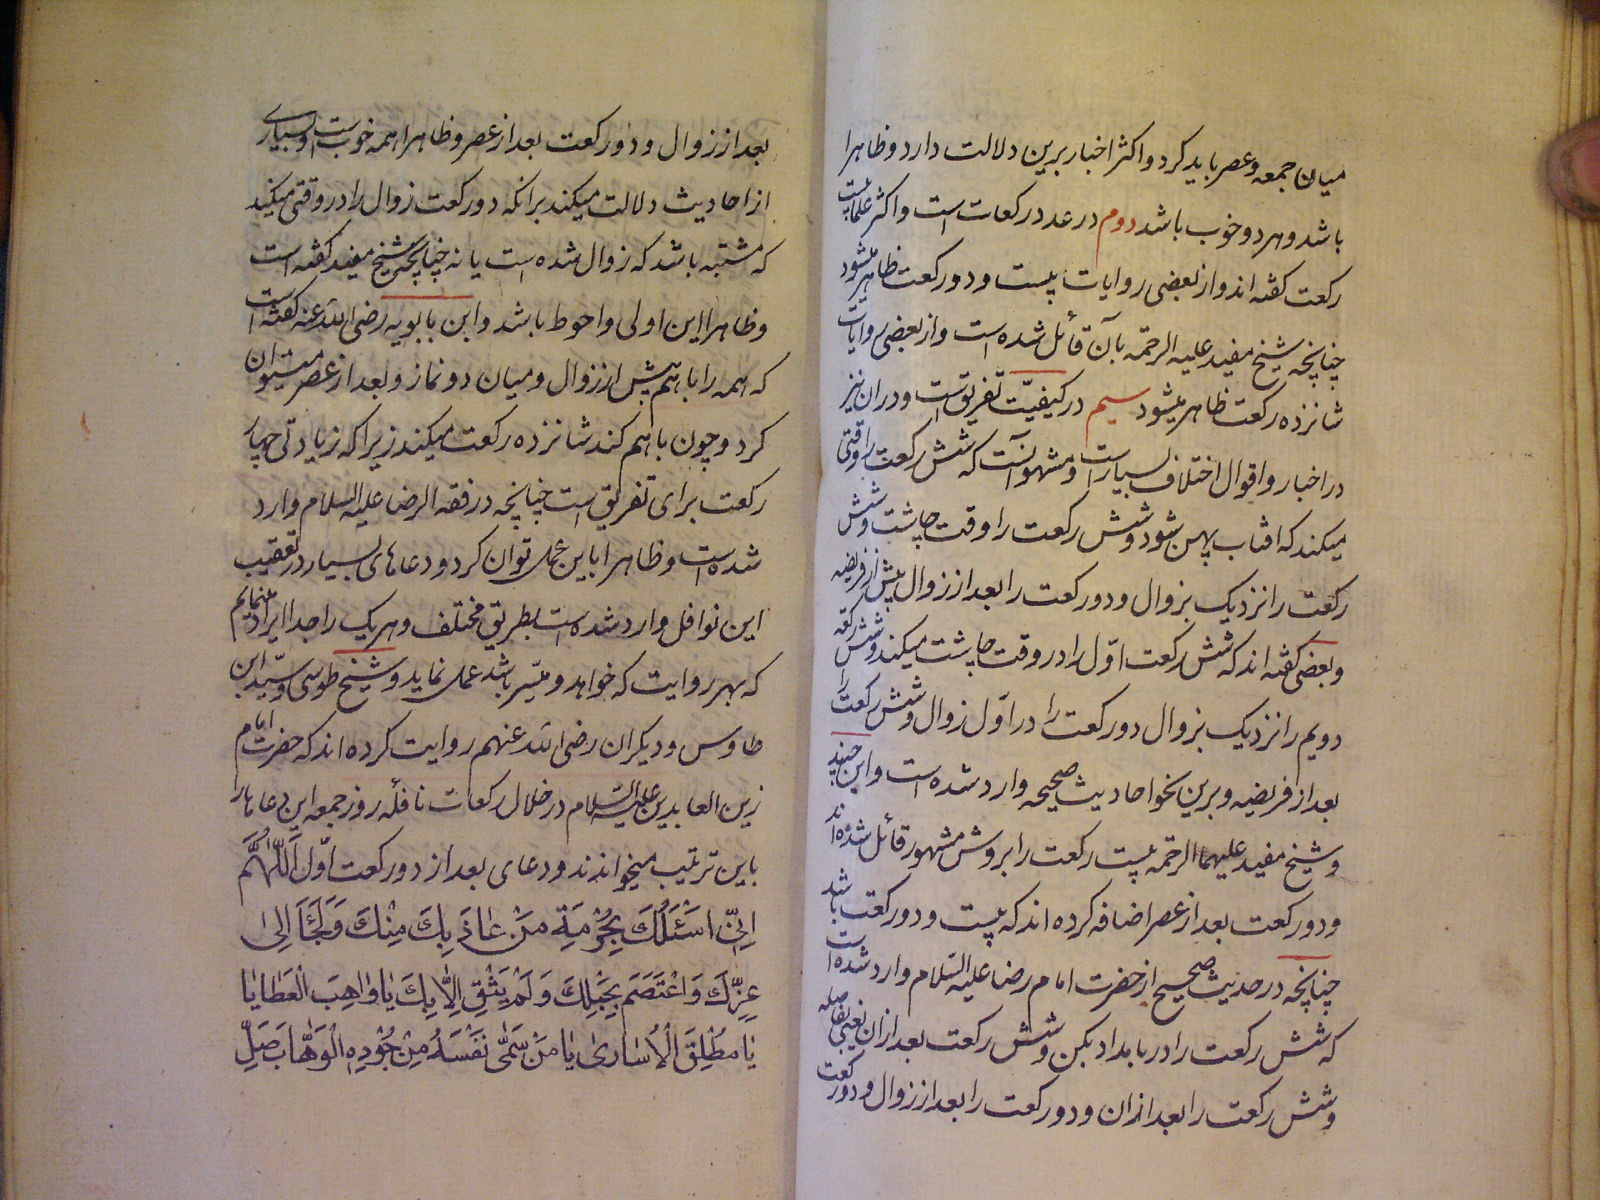 میان جمعه و عصر باید کرد و اکثر اخبار برین دلالت دارد و ظاهرا
باشد و هر دو خوب باشد دویم در عدد رکعات است و اکثر علما بیست
رکعت گفته اند و از بعضی روایات بیست و دو رکعت ظاهر میشود
چنانچه شیخ مفید علیه الرحمه بآن قائل شده است و از بعضی روایات
شانزده رکعت ظاهر میشود سیم در کیفیّت تفریق است و در ان نیز
در اخبار و اقوال اختلاف بسیار است و مشهور آنست که شش رکعت را وقتی
میکند که افتاب پهن شود و شش رکعت را وقت چاشت و شش
رکعت را نزدیک بزوال و دو رکعت را بعد از زوال پیش از فریضه
و بعضی گفته اند که شش رکعت اوّل را در وقت چاشت میکند و شش رکعت
دویم را نزدیک بزوال دو رکعت را در اوّل زوال و شش رکعت را
بعد از فریضه و برین نحو احادیث صحیحه وارد شده است و ابن جنید
و شیخ مفید علیهما الرحمه بیست رکعت را بروش مشهور قائل شده اند
و دو رکعت بعد از عصر اضافه کرده اند که بیست و دو رکعت باشد
چنانچه در حدیث صحیح از حضرت امام رضا علیه السّلام وارد شده است
که شش رکعت را در بامداد بکن و شش رکعت بعد از ان یعنی بفاصله
و شش رکعت را بعد از ان و دو رکعت را بعد از زوال و دو رکعت
بعد از زوال و دو رکعت بعد از عصر و ظاهرا همه خوب است و بسیاری
از احادیث دلالت میکند بر انکه دو رکعت زوال را در وقتی میکند
که مشتبه باشد که زوال شده است یا نه چنانچه شیخ مفید گفته است
و ظاهرا این اولی و احوط باشد و ابن بابویه رضی الله عنه گفته است
که همه را با هم پیش از زوال و میان دو نماز و بعد از عصر میتوان
کرد و چون با هم کند شانزده رکعت میکند زیرا که زیادتی چهار
رکعت برای تفریق است چنانچه در فقه الرضا علیه السلام وارد
شده است و ظاهرا باین عمل توان کرد و دعاهای بسیار در تعقیب
این نوافل وارد شده است بطریق مختلف و هر یک را جدا ایراد مینمایم
که بهر روایت که خواهد و میّسر باشد عمل نماید و شیخ طوسی و سیّد ابن
طاوس و دیکران رضی الله عنهم روایت کرده اند که حضرت امام
زین العابدین علیه السّلام در خلال رکعات نافله روز جمعه این دعاها را
باین ترتیب میخواندند و دعای بعد از دو رکعت اوّل اَللّهُمَّ
اِنّی اَسْئَلُكَ بِحُرْمَةِ مَنْ عَاذَ بِكَ مِنْكَ وَلَجَأَ اِلیٰ
عِزِّكَ وَاعْتَصَمَ بِحَبْلِكَ وَلَمْ یَثِقْ اِلّٰا بِكَ یٰا وٰاهِبَ الْعَطٰایٰا
یٰا مُطْلِقَ الْاُسٰاریٰ یٰا مَنْ سَمّٰی نَفْسَهُ مِنْ جُوْدِهِ الْوَهّٰابَ صَلِّ